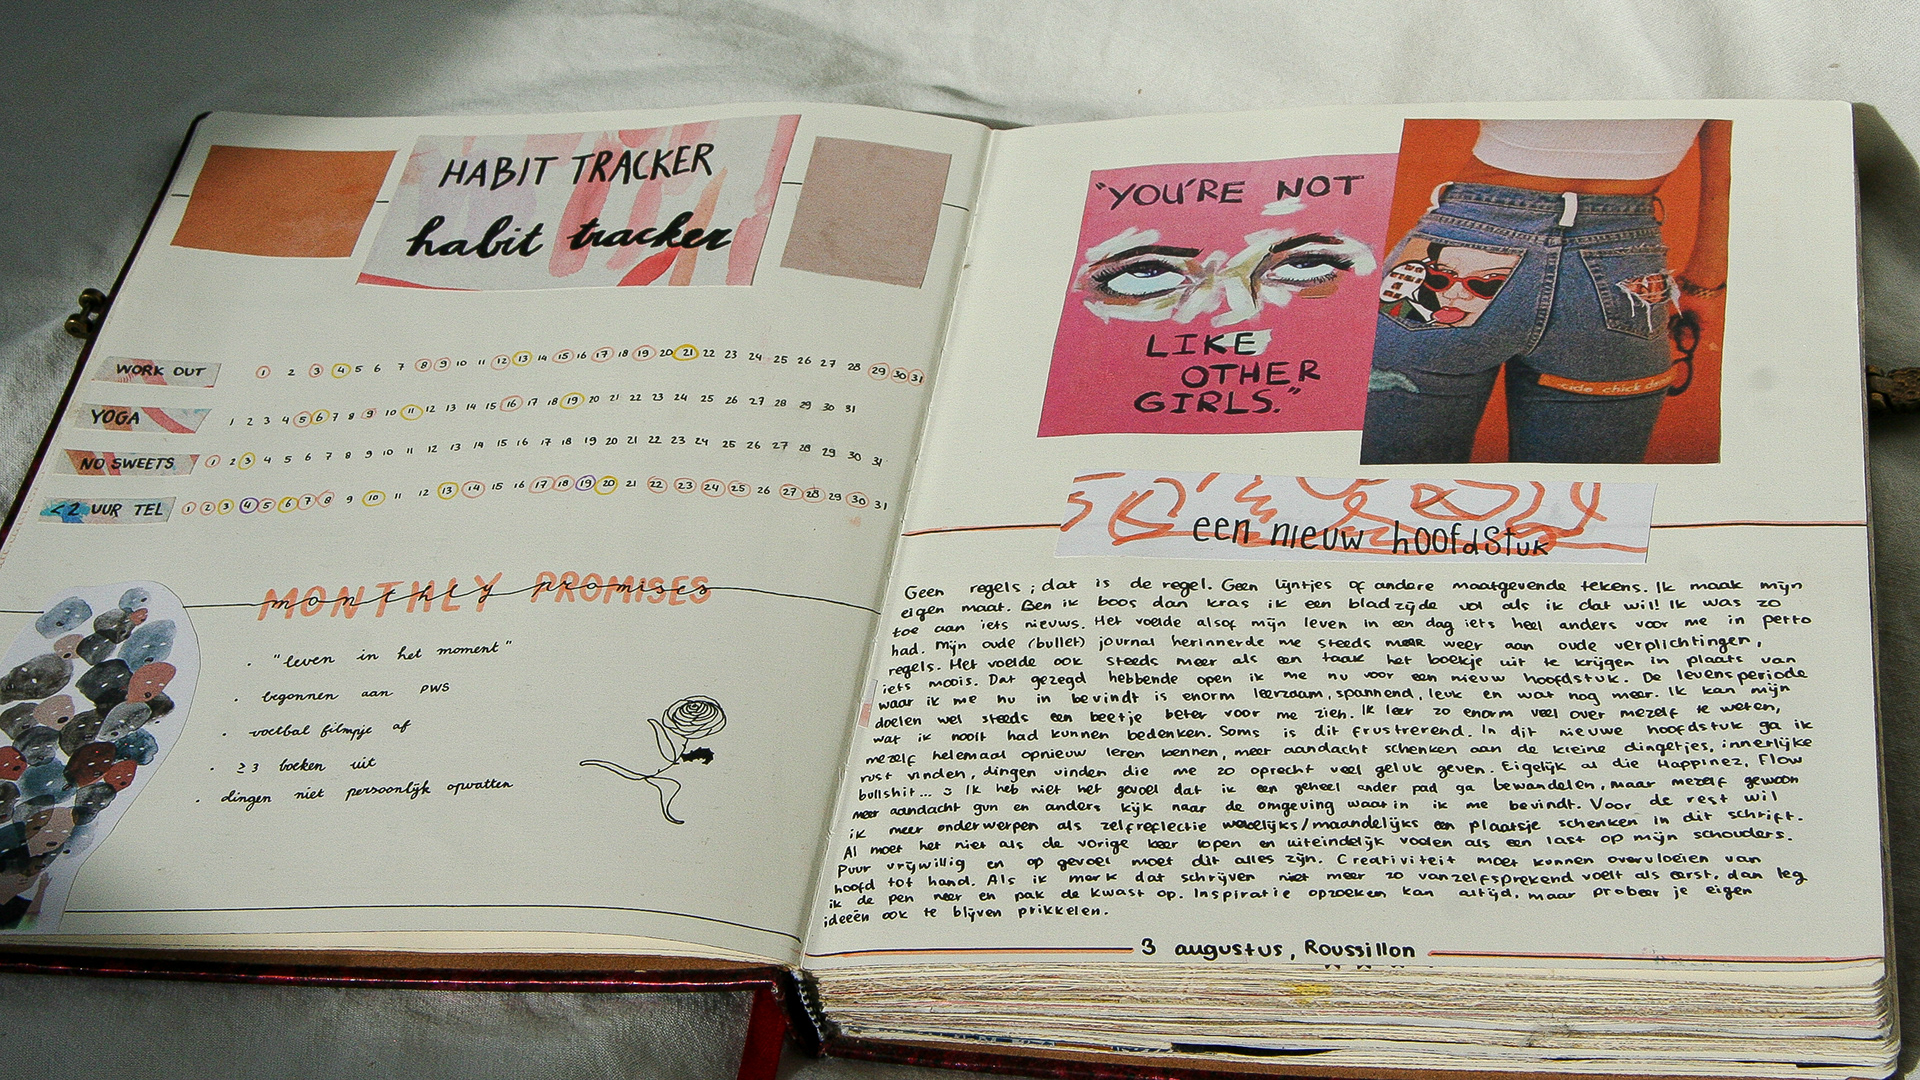 HABIT TRACKER
habit tracker
WORK OUT 1 2 3 4 5 6 7 8 9 10 11 12 13 14 15 16 17 18 19 20 21 22 23 24 25 26 27 28 29 30 31
YOGA 1 2 3 4 5 6 7 8 9 10 11 12 13 14 15 16 17 18 19 20 21 22 23 24 25 26 27 28 29 30 31
NO SWEETS 1 2 3 4 5 6 7 8 9 10 11 12 13 14 15 16 17 18 19 20 21 22 23 24 25 26 27 28 29 30 31
<2 UUR TEL 1 2 3 4 5 6 7 8 9 10 11 12 13 14 15 16 17 18 19 20 21 22 23 24 25 26 27 28 29 30 31
MONTHLY PROMISES
monthly promises
· "leven in het moment"
· begonnen aan PWS
· voetbal filmpje af
· ≥3 boeken uit
· dingen niet persoonlijk opvatten
"YOU'RE NOT
LIKE
OTHER
GIRLS."
een nieuw hoofdstuk
Geen regels; dat is de regel. Geen lijntjes of andere maatgevende tekens. Ik maak mijn
eigen maat. Ben ik boos dan kras ik een bladzijde vol als ik dat wil! Ik was zo
toe aan iets nieuws. Het voelde alsof mijn leven in een dag iets heel anders voor me in petto
had. Mijn oude (bullet) journal herinnerde me steeds maar weer aan oude verplichtingen,
regels. Het voelde ook steeds meer als een taak het boekje uit te krijgen in plaats van
iets moois. Dat gezegd hebbende open ik me nu voor een nieuw hoofdstuk. De levensperiode
waar ik me nu in bevindt is enorm leerzaam, spannend, leuk en wat nog meer. Ik kan mijn
doelen wel steeds een beetje beter voor me zien. Ik leer zo enorm veel over mezelf te weten,
wat ik nooit had kunnen bedenken. Soms is dit frustrerend. In dit nieuwe hoofdstuk ga ik
mezelf helemaal opnieuw leren kennen, meer aandacht schenken aan de kleine dingetjes, innerlijke
rust vinden, dingen vinden die me zo oprecht veel geluk geven. Eigelijk al die Happinez, Flow
bullshit... Ik heb niet het gevoel dat ik een geheel ander pad ga bewandelen, maar mezelf gewoon
meer aandacht gun en anders kijk naar de omgeving waarin ik me bevindt. Voor de rest wil
ik meer onderwerpen als zelfreflectie wekelijks/maandelijks een plaatsje schenken in dit schrift.
Al moet het niet als de vorige keer lopen en uiteindelijk voelen als een last op mijn schouders.
Puur vrijwillig en op gevoel moet dit alles zijn. Creativiteit moet kunnen overvloeien van
hoofd tot hand. Als ik merk dat schrijven niet meer zo vanzelfsprekend voelt als eerst, dan leg
ik de pen neer en pak de kwast op. Inspiratie opzoeken kan altijd, maar probeer je eigen
ideeën ook te blijven prikkelen.
3 augustus, Roussillon